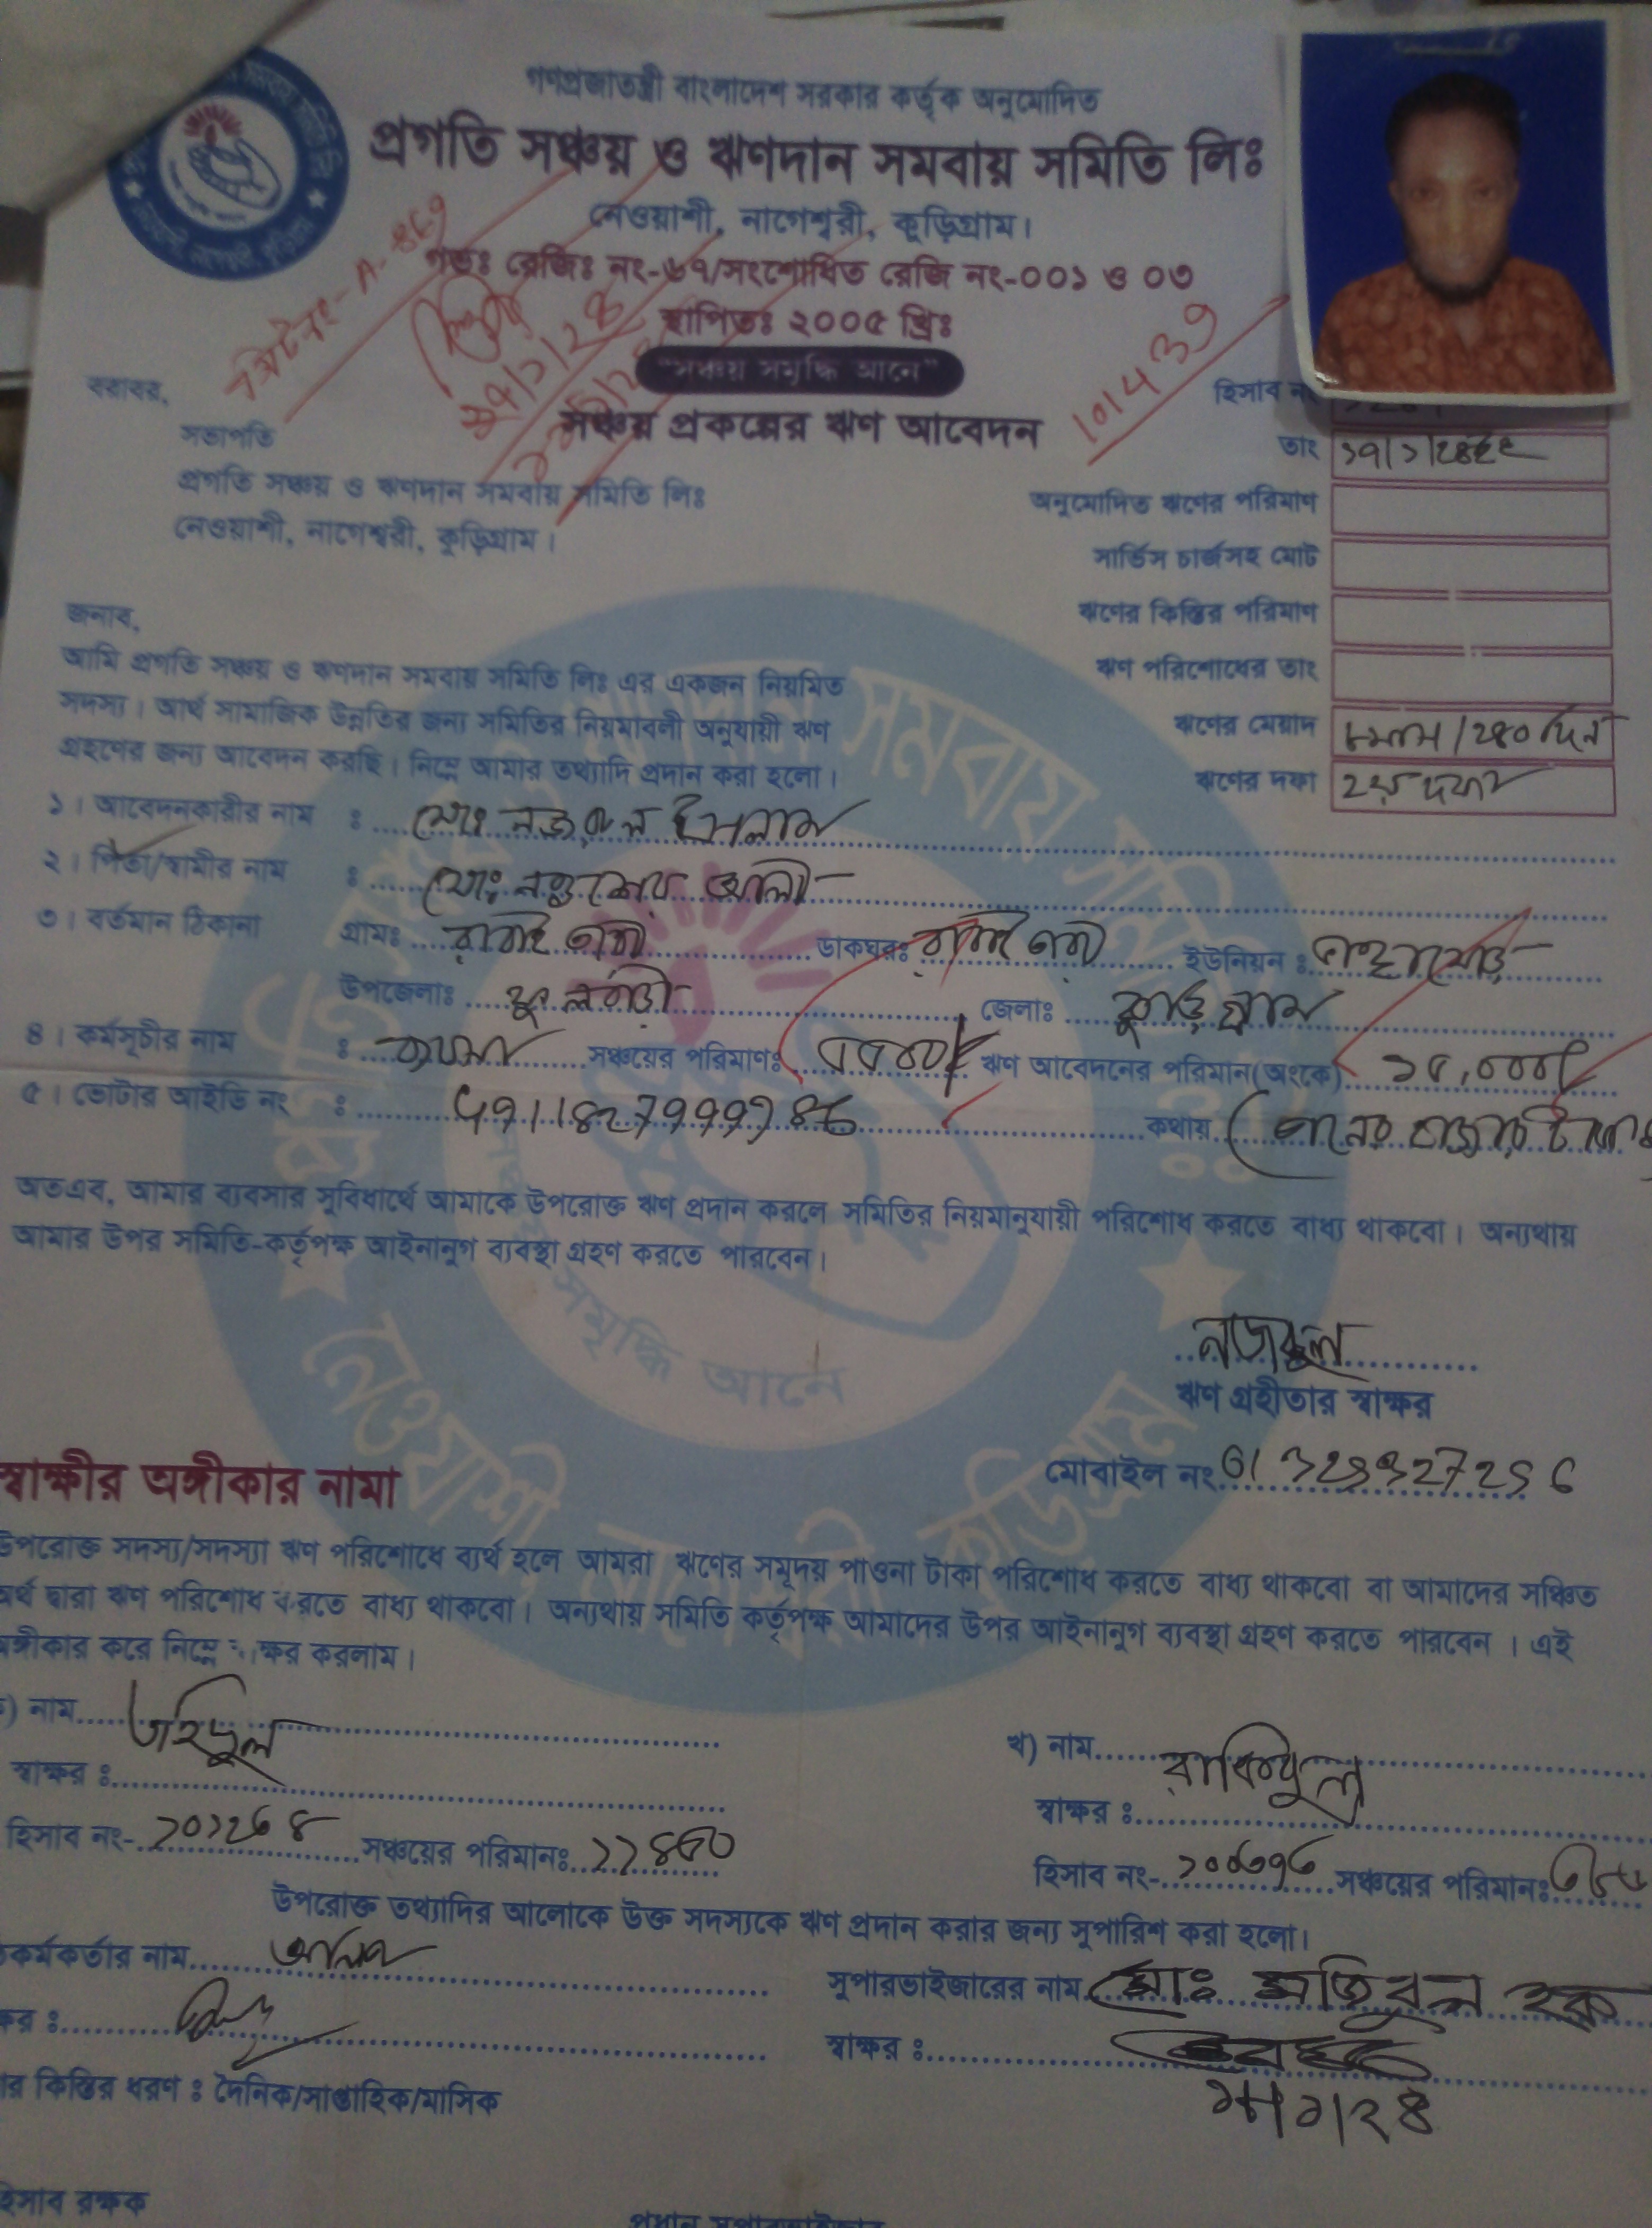 গণপ্রজাতন্ত্রী বাংলাদেশ সরকার কর্তৃক অনুমোদিত
প্রগতি সঞ্চয় ও ঋণদান সমবায় সমিতি লিঃ
নেওয়াশী, নাগেশ্বরী, কুড়িগ্রাম।
গভঃ রেজিঃ নং-৬৭/সংশোধিত রেজি নং-০০১ ও ০৩
স্থাপিতঃ ২০০৫ খ্রিঃ
"সঞ্চয় সমৃদ্ধি আনে"
সঞ্চয় প্রকল্পের ঋণ আবেদন
101439
বরাবর,
সভাপতি
প্রগতি সঞ্চয় ও ঋণদান সমবায় সমিতি লিঃ
নেওয়াশী, নাগেশ্বরী, কুড়িগ্রাম।
হিসাব নং
তাং
অনুমোদিত ঋণের পরিমাণ
সার্ভিস চার্জসহ মোট
ঋণের কিস্তির পরিমাণ
ঋণ পরিশোধের তাং
ঋণের মেয়াদ ৮মাস/২৪০দিন
ঋণের দফা ২য় দফা
জনাব,
আমি প্রগতি সঞ্চয় ও ঋণদান সমবায় সমিতি লিঃ এর একজন নিয়মিত
সদস্য। আর্থ সামাজিক উন্নতির জন্য সমিতির নিয়মাবলী অনুযায়ী ঋণ
গ্রহণের জন্য আবেদন করছি। নিম্নে আমার তথ্যাদি প্রদান করা হলো।
১। আবেদনকারীর নাম : মোঃ নজরুল ইসলাম
২। পিতা/স্বামীর নাম : মোঃ নওশের আলী
৩। বর্তমান ঠিকানা গ্রামঃ ডাকঘরঃ ইউনিয়ন :
উপজেলাঃ ফুলবাড়ী জেলাঃ কুড়িগ্রাম
৪। কর্মসূচীর নাম : ব্যবসা সঞ্চয়ের পরিমাণঃ ঋণ আবেদনের পরিমান(অংকে) ১৫,০০০/
৫। ভোটার আইডি নং : কথায় (পনের হাজার টাকা
অতএব, আমার ব্যবসার সুবিধার্থে আমাকে উপরোক্ত ঋণ প্রদান করলে সমিতির নিয়মানুযায়ী পরিশোধ করতে বাধ্য থাকবো। অন্যথায়
আমার উপর সমিতি-কর্তৃপক্ষ আইনানুগ ব্যবস্থা গ্রহণ করতে পারবেন।
নজরুল
ঋণ গ্রহীতার স্বাক্ষর
মোবাইল নং
স্বাক্ষীর অঙ্গীকার নামা
উপরোক্ত সদস্য/সদস্যা ঋণ পরিশোধে ব্যর্থ হলে আমরা ঋণের সমূদয় পাওনা টাকা পরিশোধ করতে বাধ্য থাকবো বা আমাদের সঞ্চিত
অর্থ দ্বারা ঋণ পরিশোধ করতে বাধ্য থাকবো। অন্যথায় সমিতি কর্তৃপক্ষ আমাদের উপর আইনানুগ ব্যবস্থা গ্রহণ করতে পারবেন। এই
অঙ্গীকার করে নিম্নে স্বাক্ষর করলাম।
) নাম
খ) নাম
স্বাক্ষর :
স্বাক্ষর :
হিসাব নং- ১০১২৬৪ সঞ্চয়ের পরিমানঃ ১১৪৫০
হিসাব নং- ১০০৬৭৬ সঞ্চয়ের পরিমানঃ
উপরোক্ত তথ্যাদির আলোকে উক্ত সদস্যকে ঋণ প্রদান করার জন্য সুপারিশ করা হলো।
কর্মকর্তার নাম
সুপারভাইজারের নাম মোঃ মতিবুল হক
ক্ষর :
স্বাক্ষর :
ার কিস্তির ধরণ : দৈনিক/সাপ্তাহিক/মাসিক
হিসাব রক্ষক
প্রধান সুপারভাইজার